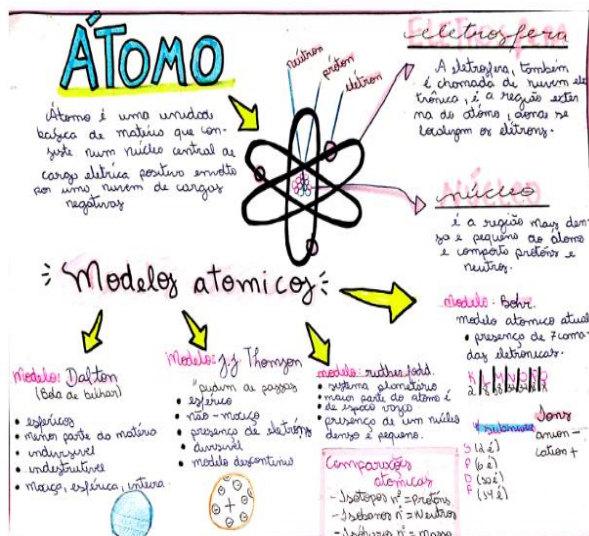 ÁTOMO
Átomo é uma unidad
básica de matéria que con-
siste num núcleo central de
carga elétrica positivo envolto
por uma nuvem de cargas
negativas
nêutron
próton
elétron
Eletrosfera
eletrosfera
A eletrosfera, também
é chamada de nuvem ele
trônica, é a região exter
na do átomo, aonde se
localizam os elétrons.
Núcleo
núcleo
é a região mais den-
sa e pequena do átomo
e comporta protóns e
neutros.
Modelos atomicos
Modelo: Dalton
(Bola de bilhar)
• esféricos
• menor parte da matéria
• indivisível
• indestrutível
• maciço, esférica, inteira.
Modelo: J.J Thomson
"pudim de passas
• esférico
• não-maciço
• presença de eletróns
• divisível
• modelo descontinuo
modelo: ruther fodd.
• sistema planetário
• maior parte do atomo é
de espaço vazio
• presença de um núcleo
denso e pequeno.
modelo: Bohr.
modelo atomico atual
• presença de 7 cama
das eletrônicas.
K L M N O P Q
subníveis
S (2 é)
P (6 é)
D (10 é)
F (14 é)
Ions
anion -
cation +
Comparações
atomicas
- Isótopos nº = protóns
- Isóbaros nº = Neutros
nº = massa